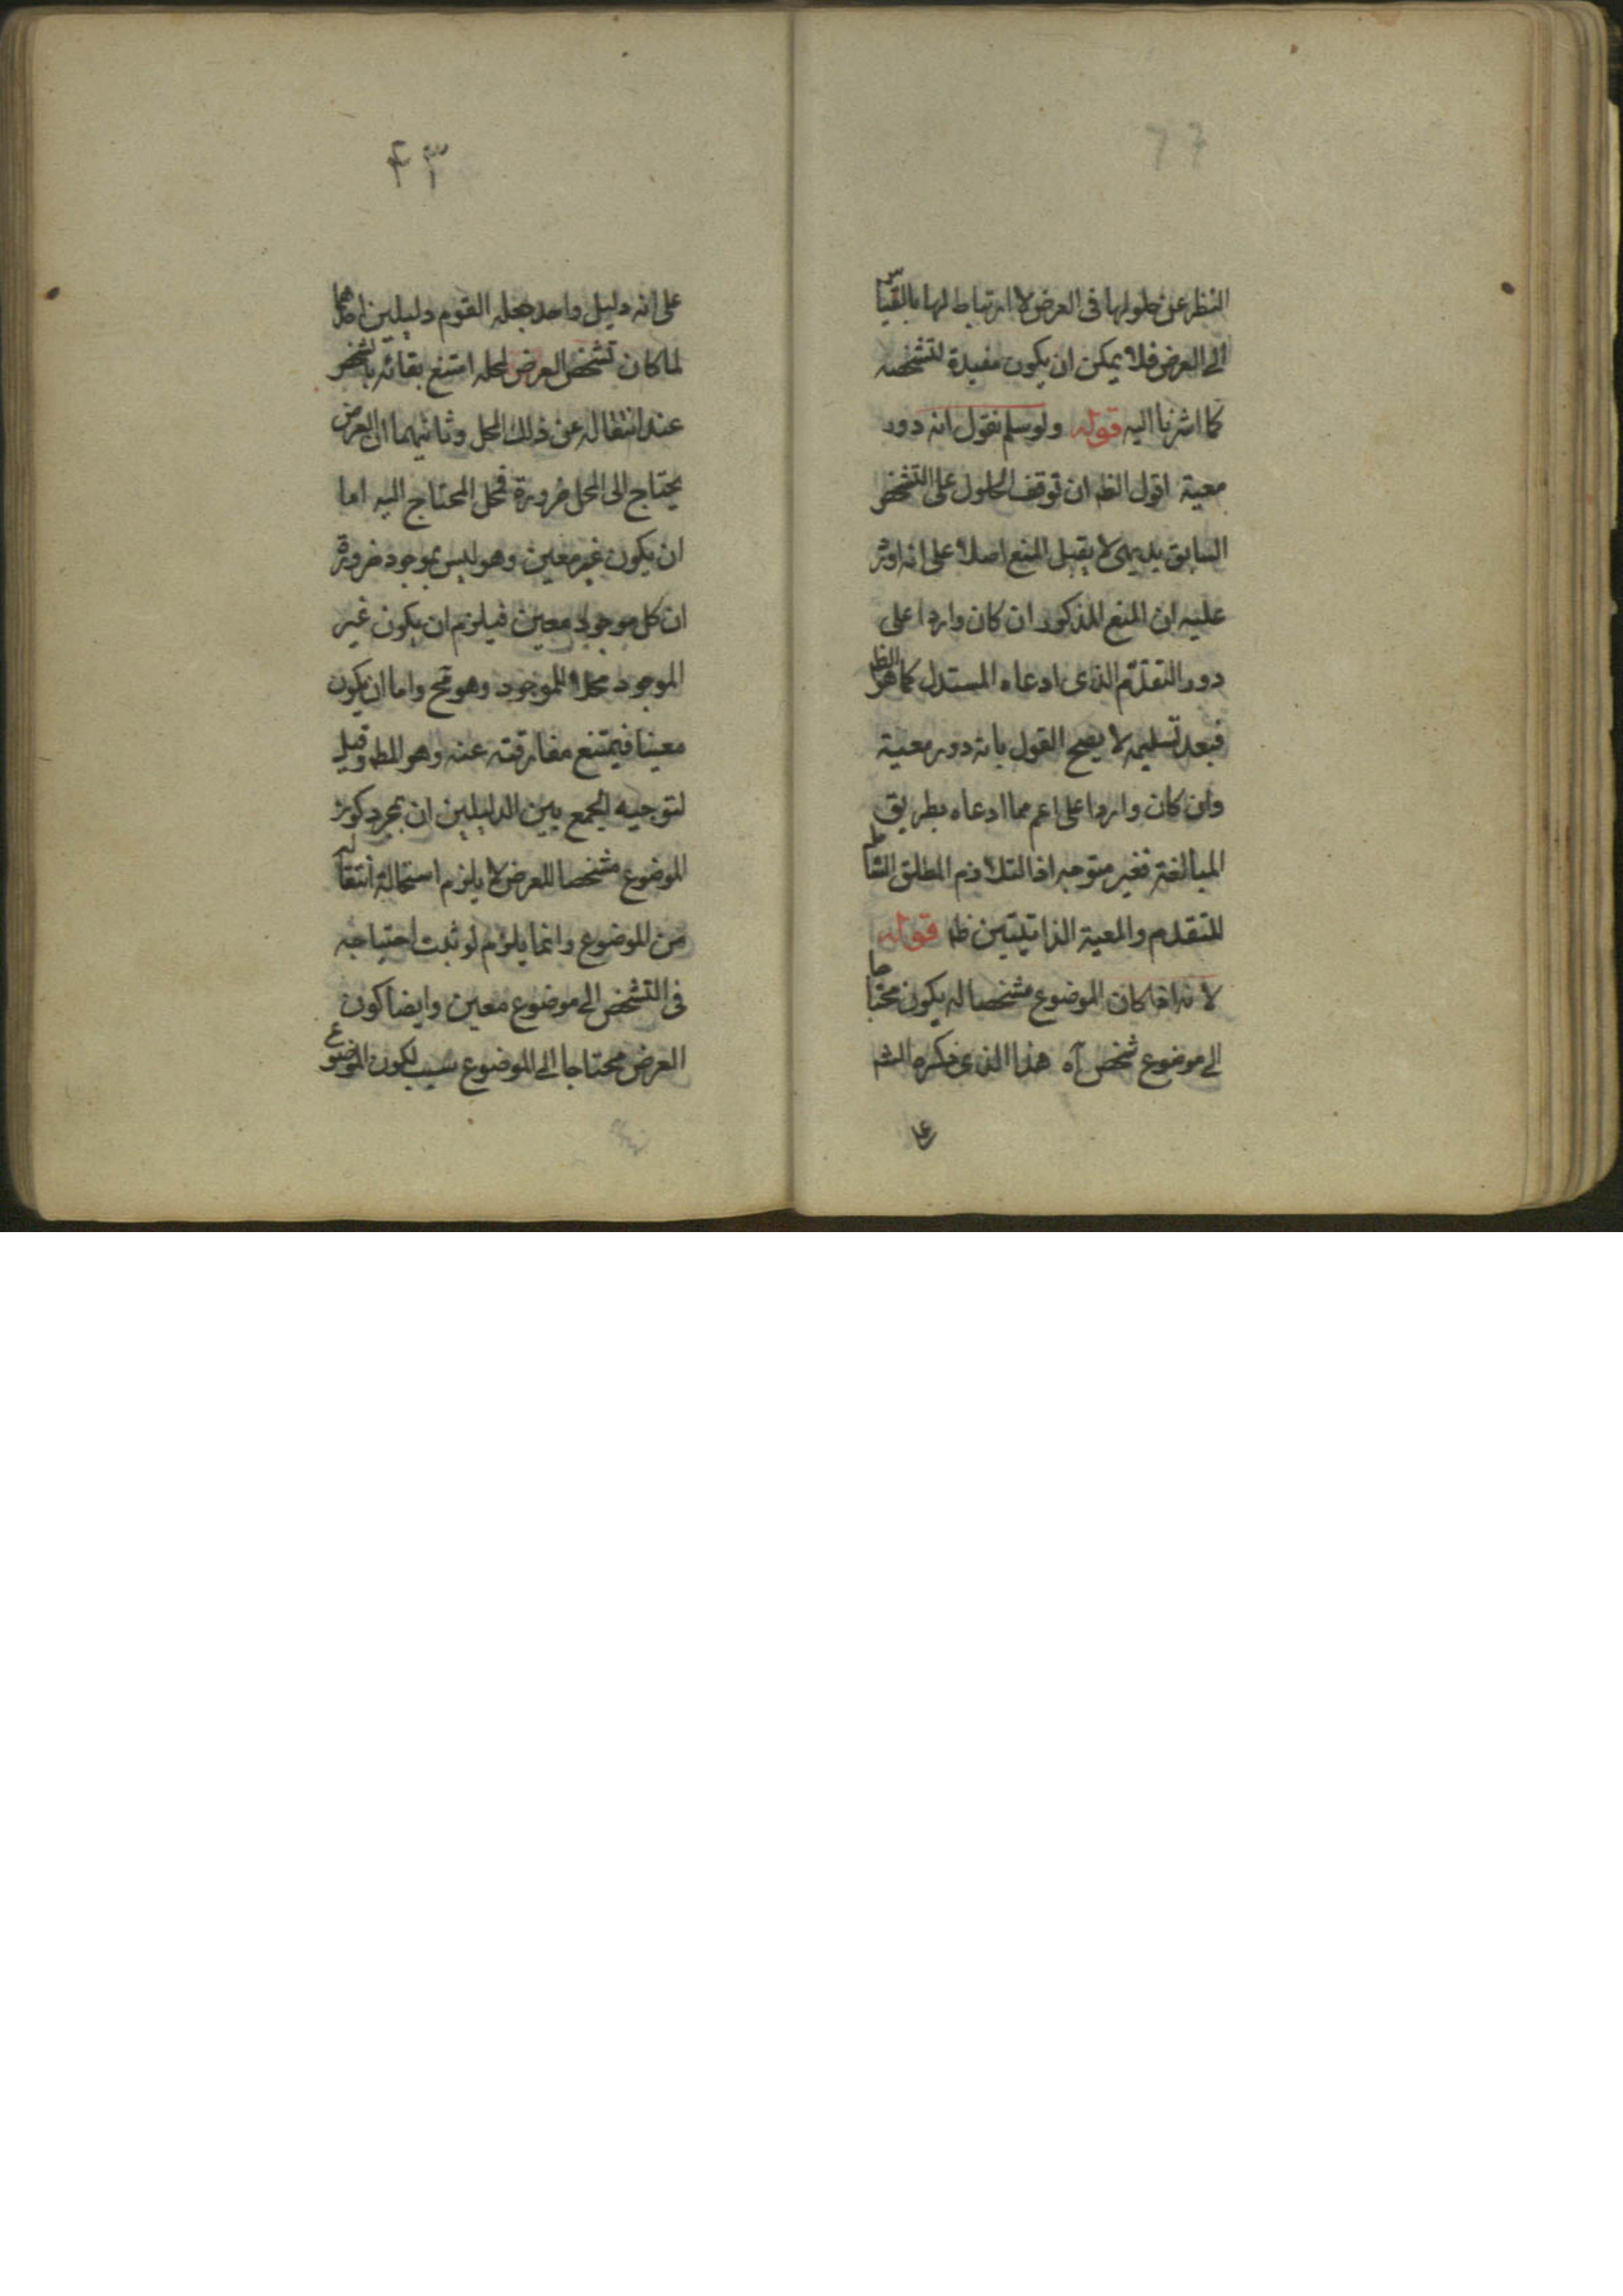 النظر عن حلولها فى العرض لا ارتباط لها بالقياس
الى العرض فلا يمكن ان يكون مفيدة لتشخصه
كما اشرنا اليه قوله ولو سلم نقول انه دور
معية اقول الظ ان توقف الحلول على التشخص
السابق بديهى لا يقبل المنع اصلا على انه اورد
عليه ان المنع المذكور ان كان واردا على
دور التقدّم الذى ادعاه المستدل كما هو الظ
فبعد تسليمه لا يصح القول بانه دور معية
وان كان واردا على اعم مما ادعاه بطريق
المبالغة فغير متوجه اذ التلازم المطلق الشامل
للتقدم والمعية الذاتيتين ظ قوله
لانه اذا كان الموضوع مشخصا له يكون محتاجا
الى موضوع شخص آه هذا الذى ذكره الش
على
۴۳
على انه دليل واحد جعله القوم دليلين احدهما
لما كان تشخص العرض لمحله امتنع بقائه بالشخص
عند انتقاله عن ذلك المحل وثانيهما ان العرض
يحتاج الى المحل ضرورة فمحل المحتاج اليه اما
ان يكون غير معين وهو ليس بموجود ضرورة
ان كل موجود معين فيلزم ان يكون غير
الموجود محلا للموجود وهو مح واما ان يكون
معينا فيمتنع مفارقته عنه وهو المط وقيل
لتوجيه الجمع بين الدليلين ان مجرد كون
الموضوع مشخصا للعرض لا يلزم استحالة انتقاله
من الموضوع وانما يلزم لو ثبت احتياجه
فى التشخص الى موضوع معين وايضا كون
العرض محتاجا الى الموضوع سبب لكون الموضوع